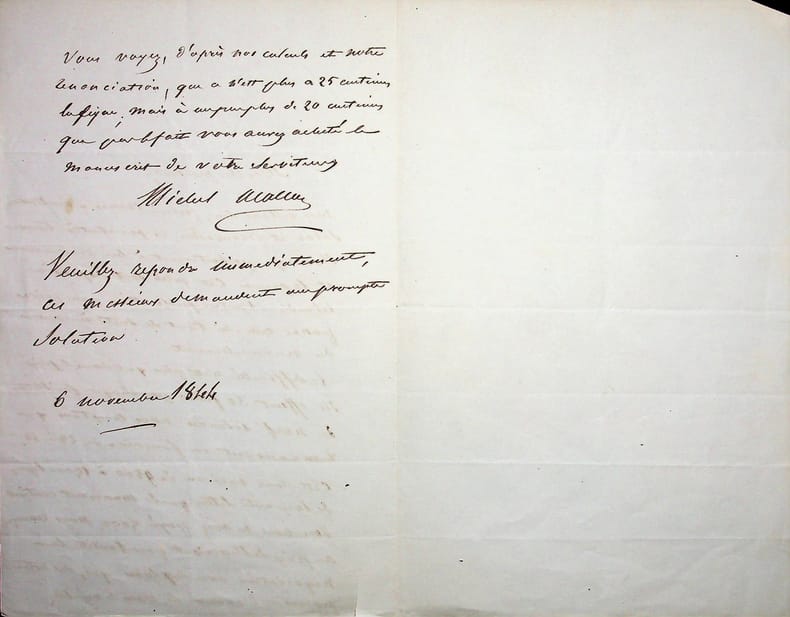 Vous voyez, d'après nos calculs et notre
renonciation, que ce n'est plus à 25 centimes
la ligne, mais à un peu plus de 20 centimes
que par le fait vous aurez acheté le
manuscrit de votre serviteur
Michel
Veuillez repondre immédiatement,
ces messieurs demandent une prompte
solution
6 novembre 1844